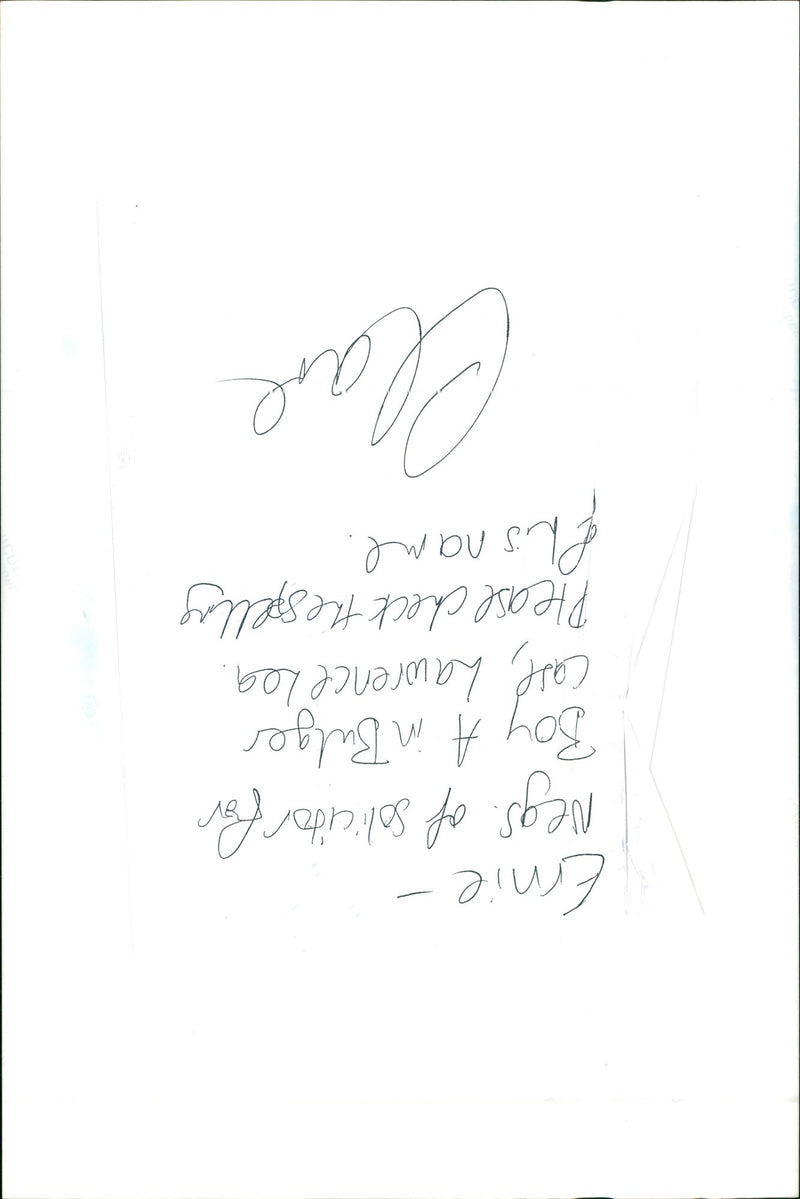 Ernie –
Negs. of solicitor for
Boy A in Bulger
case, Lawrence Lea.
Please check the spelling
of his name.
Clare